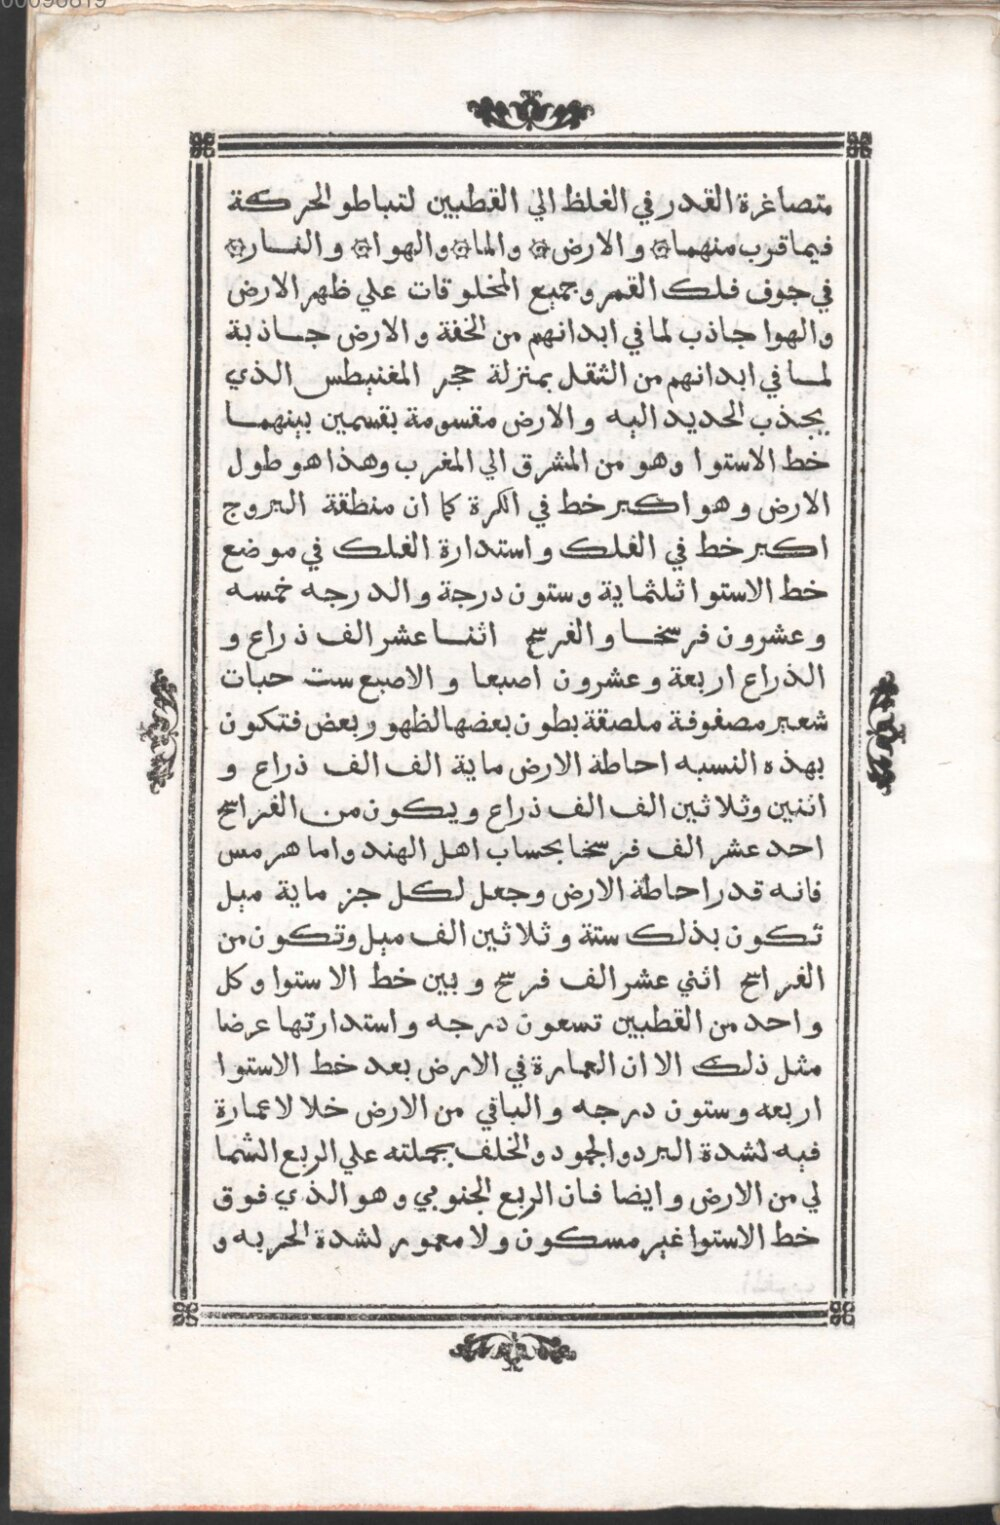 00096819
متصاغرة القدر في الغلظ الي القطبين لتباطو الحركة
فيما قرب منهما۞ والارض۞ والما۞ والهوا۞ والنار۞
في جوف فلك القمر وجميع المخلوقات علي ظهر الارض
والهوا جاذب لما في ابدانهم من الخفة والارض جاذبة
لما في ابدانهم من الثقل بمنزلة حجر المغنيطس الذي
يجذب الحديد اليه والارض مقسومة بقسمين بينهما
خط الاستوا وهو من المشرق الي المغرب وهذا هو طول
الارض وهو اكبر خط في الكرة كما ان منظقة البروج
اكبر خط في الفلك واستدارة الفلك في موضع
خط الاستوا ثلثماية وستون درجة والدرجه خمسه
وعشرون فرسخا والفرسخ اثنا عشر الف ذراع و
الذراع اربعة وعشرون اصبعا والاصبع ست حبات
شعير مصفوفة ملصقة بطون بعضها لظهور بعض فتكون
بهذه النسبه احاطة الارض ماية الف الف ذراع و
اثنين وثلاثين الف الف ذراع ويكون من الفراسخ
احد عشر الف فرسخا بحساب اهل الهند واما هرمس
فانه قدر احاطة الارض وجعل لكل جز ماية ميل
تكون بذلك ستة وثلاثين الف ميل وتكون من
الفراسخ اثني عشر الف فرسخ وبين خط الاستوا وكل
واحد من القطبين تسعون درجه واستدارتها عرضا
مثل ذلك الا ان العمارة في الارض بعد خط الاستوا
اربعه وستون درجه والباقي من الارض خلا لا عمارة
فيه لشدة البرد والجمود والخلف بجملته علي الربع الشما
لي من الارض وايضا فان الربع الجنوبي وهو الذي فوق
خط الاستوا غير مسكون ولا معمور لشدة الحر به و